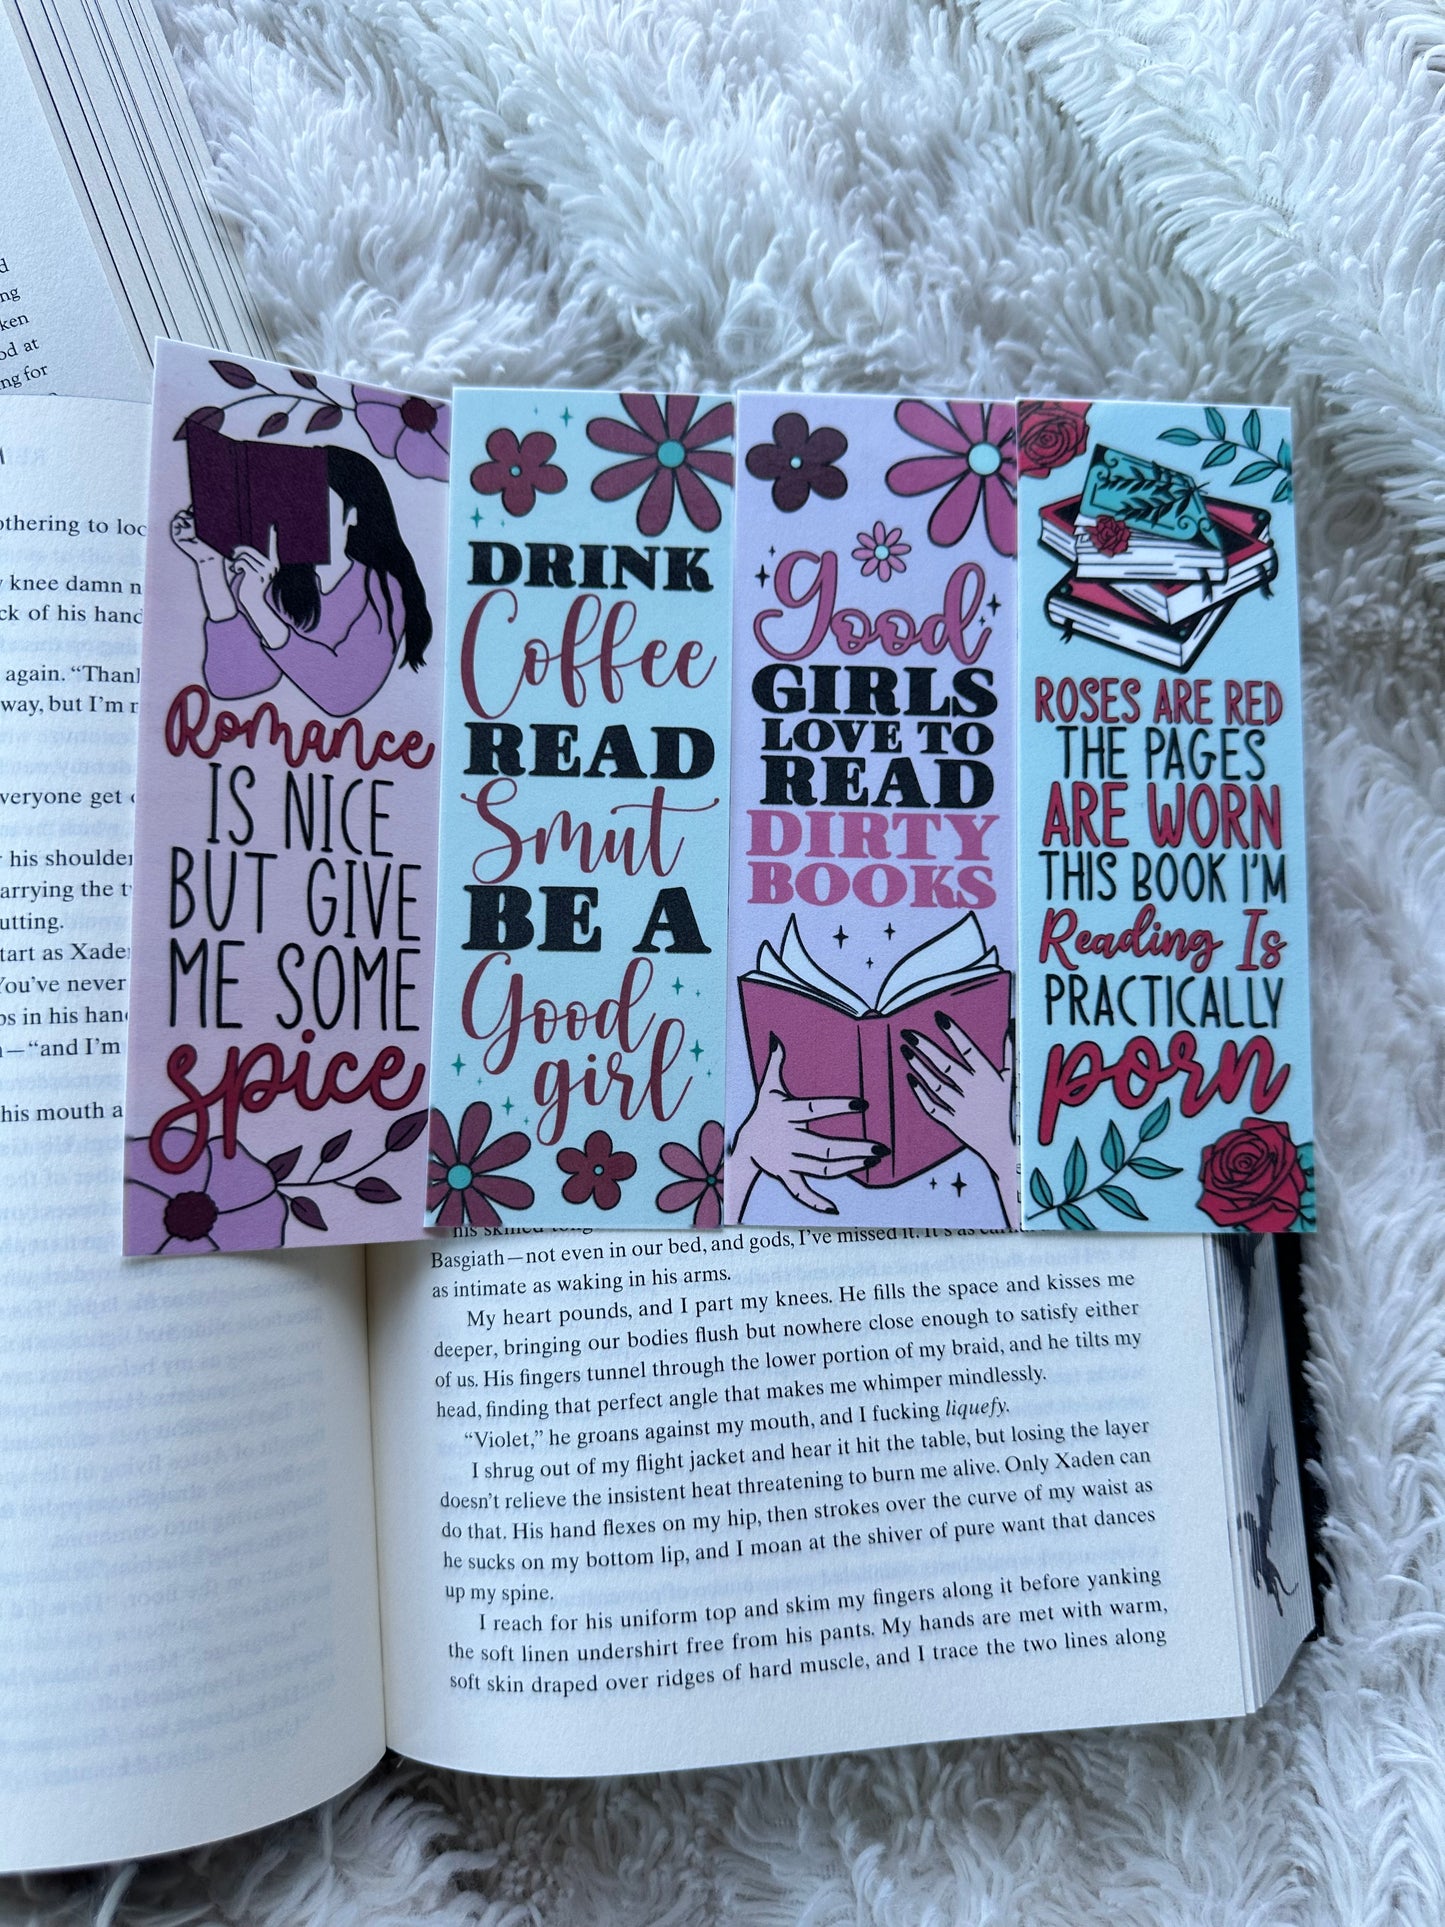 d
ng
ken
od at
ng for
othering to loc
knee damn n
ck of his hand
again. “Thank
way, but I’m r
veryone get
his shoulder
arrying the t
utting.
tart as Xade
You’ve never
ps in his hand
—“and I’m
his mouth a
Romance
IS NICE
BUT GIVE
ME SOME
spice
DRINK
Coffee
READ
Smut
BE A
Good
girl
Good
GIRLS
LOVE TO
READ
DIRTY
BOOKS
ROSES ARE RED
THE PAGES
ARE WORN
THIS BOOK I’M
Reading Is
PRACTICALLY
porn
his skilled
Basgiath—not even in our bed, and gods, I’ve missed it. It’s as
as intimate as waking in his arms.
My heart pounds, and I part my knees. He fills the space and kisses me
deeper, bringing our bodies flush but nowhere close enough to satisfy either
of us. His fingers tunnel through the lower portion of my braid, and he tilts my
head, finding that perfect angle that makes me whimper mindlessly.
“Violet,” he groans against my mouth, and I fucking liquefy.
I shrug out of my flight jacket and hear it hit the table, but losing the layer
doesn’t relieve the insistent heat threatening to burn me alive. Only Xaden can
do that. His hand flexes on my hip, then strokes over the curve of my waist as
he sucks on my bottom lip, and I moan at the shiver of pure want that dances
up my spine.
I reach for his uniform top and skim my fingers along it before yanking
the soft linen undershirt free from his pants. My hands are met with warm,
soft skin draped over ridges of hard muscle, and I trace the two lines along